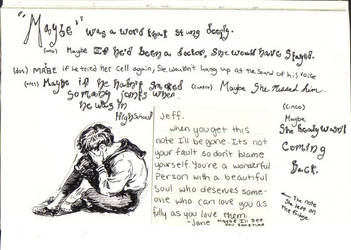 "Maybe" was a word that stung deeply.
(uno) Maybe If he'd been a doctor, she would have stayed.
(dos) MABE if he tried her cell again, she wouldn't hang up at the sound of his voice
(tres) Maybe if he hadn't smoked
so many joints when
he was in
High School
(cuatro) Maybe She missed him.
(cinco)
Maybe
She really wasn't
Coming
Back.
Jeff.
When you get this
note I'll be gone. Its not
your fault so don't blame
yourself. You're a wonderful
Person with a beautiful
Soul who deserves some-
one who can love you as
fully as you love them.
-Jane
Maybe I'll See
you sometime
The note
She left on
The Fridge.